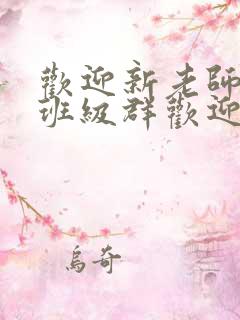 歡迎新老師
班級群歡迎
烏奇